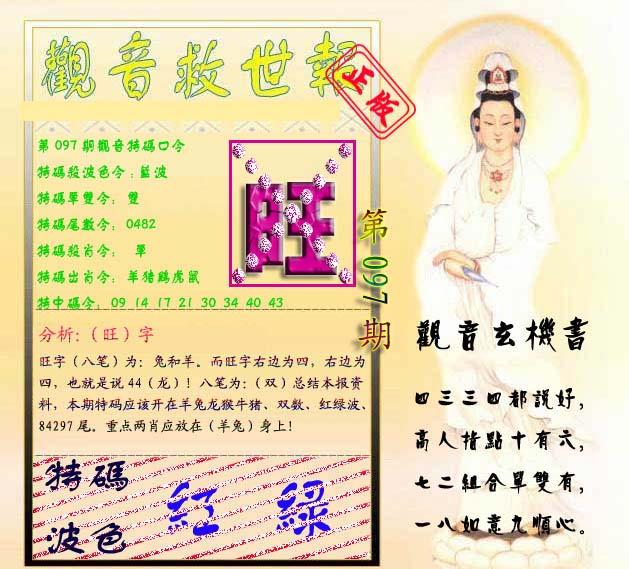 觀音救世報
正版
第097期觀音特碼口令
特碼殺波色令:藍波
特碼單雙令: 雙
特碼尾數令: 0482
特碼殺肖令: 單
特碼出肖令: 羊猪鷄虎鼠
特中碼令: 09 14 17 21 30 34 40 43
旺
第097期
分析:(旺)字
旺字(八笔)为: 兔和羊。而旺字右边为四, 右边为
四, 也就是说44(龙)! 八笔为:(双)总结本报资
料, 本期特码应该开在羊兔龙猴牛猪、双数、红绿波、
84297尾。重点两肖应放在(羊兔)身上!
特碼
波色
紅 綠
觀音玄機書
四三三四都説好,
高人指點十有六,
七二組合單雙有,
一八如意九順心。